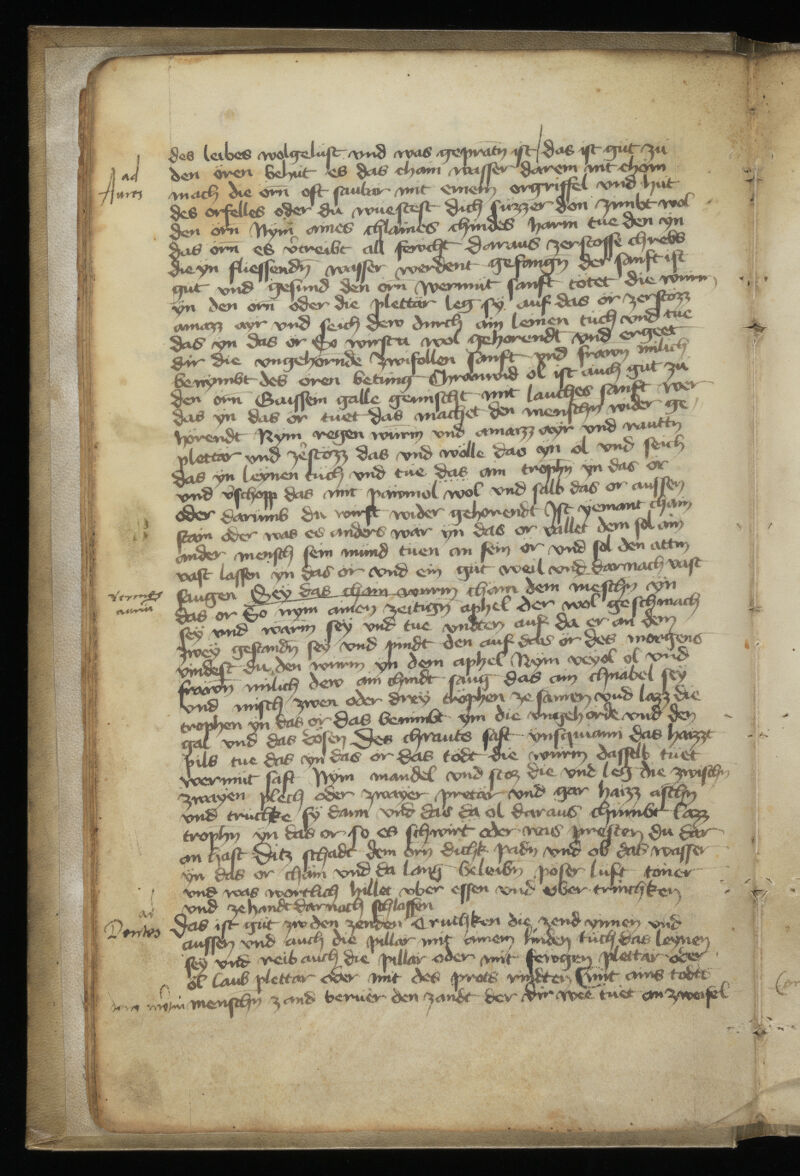 des leibes wolgelust vnd was gepratn ist / das ist gut zu
ad
Aures
den oren behut es das chain wasser darein nit chom
mach die orn oft sauber mit einem orgriffel vnd hut
des orfelles oder du wuestest dich suzzer don zimbt wol
den orn Nym aines chlaines chindes harn tue den yn
das orn es vtreibt all fewcht daraus zerstosse chrebs
die yn fliessendn wasser werdent gefangn der sanft ist
gut vnd gesund den orn wermut sanft totet die wurm
yn den orn oder die plettar leg sy auf das or zerstozz
amazz ayr vnd seich dew durch ain leinen tuch vnd tue
das yn das or So wirstu wol gehorendt vnd ergeet
dir die vngehornde zwifollen sanft vnd frawn milich
benymbt des oren ol ist auch gut zu
den orn Gaissein galle gemischt mit lauches sanft wer
das yn das or tuet das machet den menschn wider ge
horendt Nym regen wurm vnd amazz ayr vnd rauttn
plettar vnd zestozz das vnd wolle das yn ol vnd seich
das yn leynen tuch vnd tue das ain trophn yn das or
vnd vschopp das mit pawmol wol vnd salb das or aussen
oder darumb du wirst wider gehorendt Ist yemant chain
stain oder was es anders war yn das or vallet dem sol ain
ander mensch sein mund tuen an sein or vnd sol den attm
vast lassen yn das or vnd ein gut weil vnd darnach vast
vermes
auriu
saugen Sey das chain wurm chain dem meschn yn
das or So nym ainen zeitign aphel der wol geschmach
sey vnd warm sey vnd tue vndten auf da er an dem
zwey gestandn sey vnd pindt den auf das or des morgens
vindest du den wurm yn dem aphel Nym veyol ol vnd
frawn milich dew ain chindt saug das ain chnabel sey
vnd misch zwen oder drey trophen ze samen vnd lazz die
trophen yn das or das benimbt ym die vngehorde vnd den
gal vnd das dosen Des chrauts saft Iusquiami das haizzt
pils tue das yn das or das todt die wurm dasselb tuet
wermut saft Nym mandel vnd stoz die vnd leg die zwischn
zwayen plech oder zwayer pretar vnd gar haizz aschn
vnd truckke sy dann vnd das da ol daraus chumbt lazz
trophn yn das or so es schwirt oder prestn du dar
an hast Ditz schadt dem orn dickk padn vnd ob das wasser
yn das or chain vnd da lang beleibn poser luft toner
vnd was wortlich hillet vber essen vnd vber trinchken
vnd zehandt darnach schlaffen
ad
Dentes
Das ist gut zw den zenden Truchken die zend ynnen vnd
aussen vnd auch die pillar mit ainem linden tuch das leynen
sey vnd reib auch die pillar oder mit plettar oder
ol laub plettar oder mit des prots rindten Mit ains todtt
menschn zand beruer den zandt der dir wee tuet an zweifel